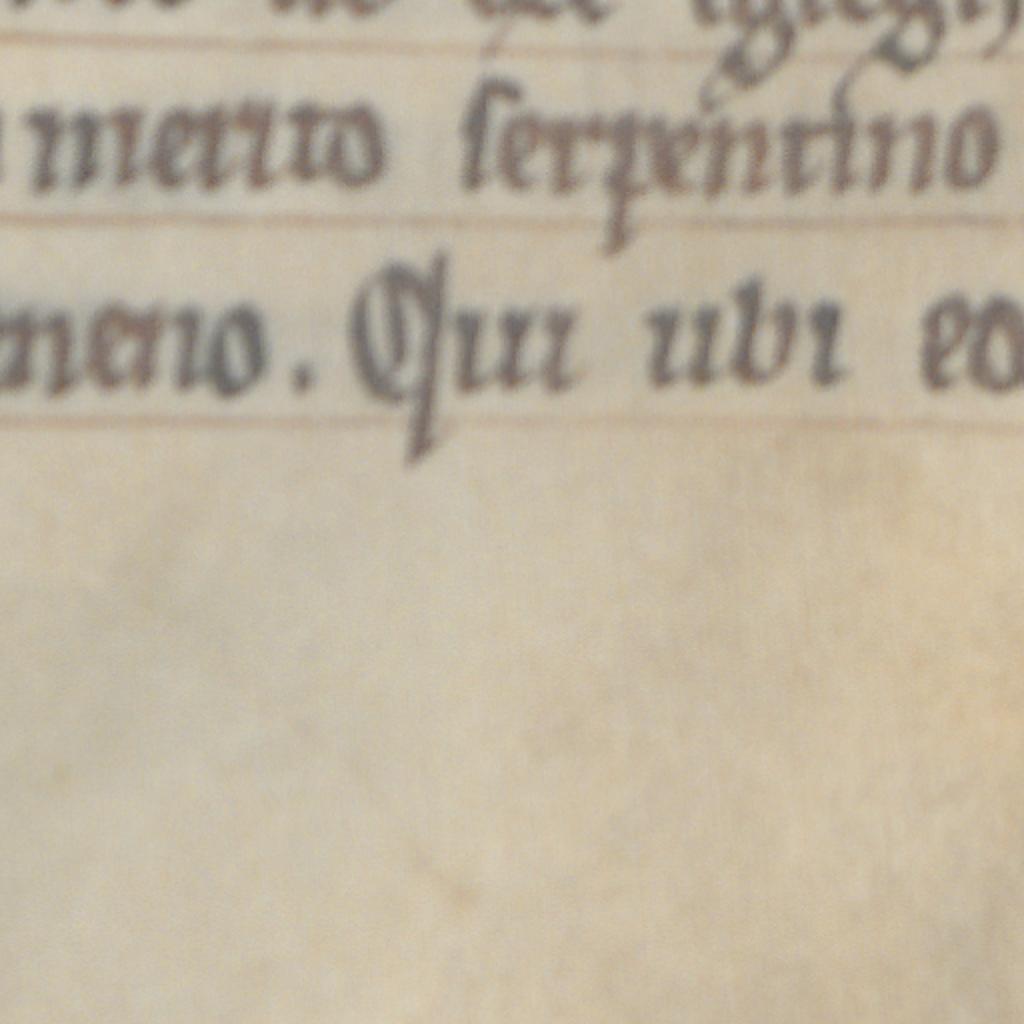 merito serpentino
neno. Qui ubi eo